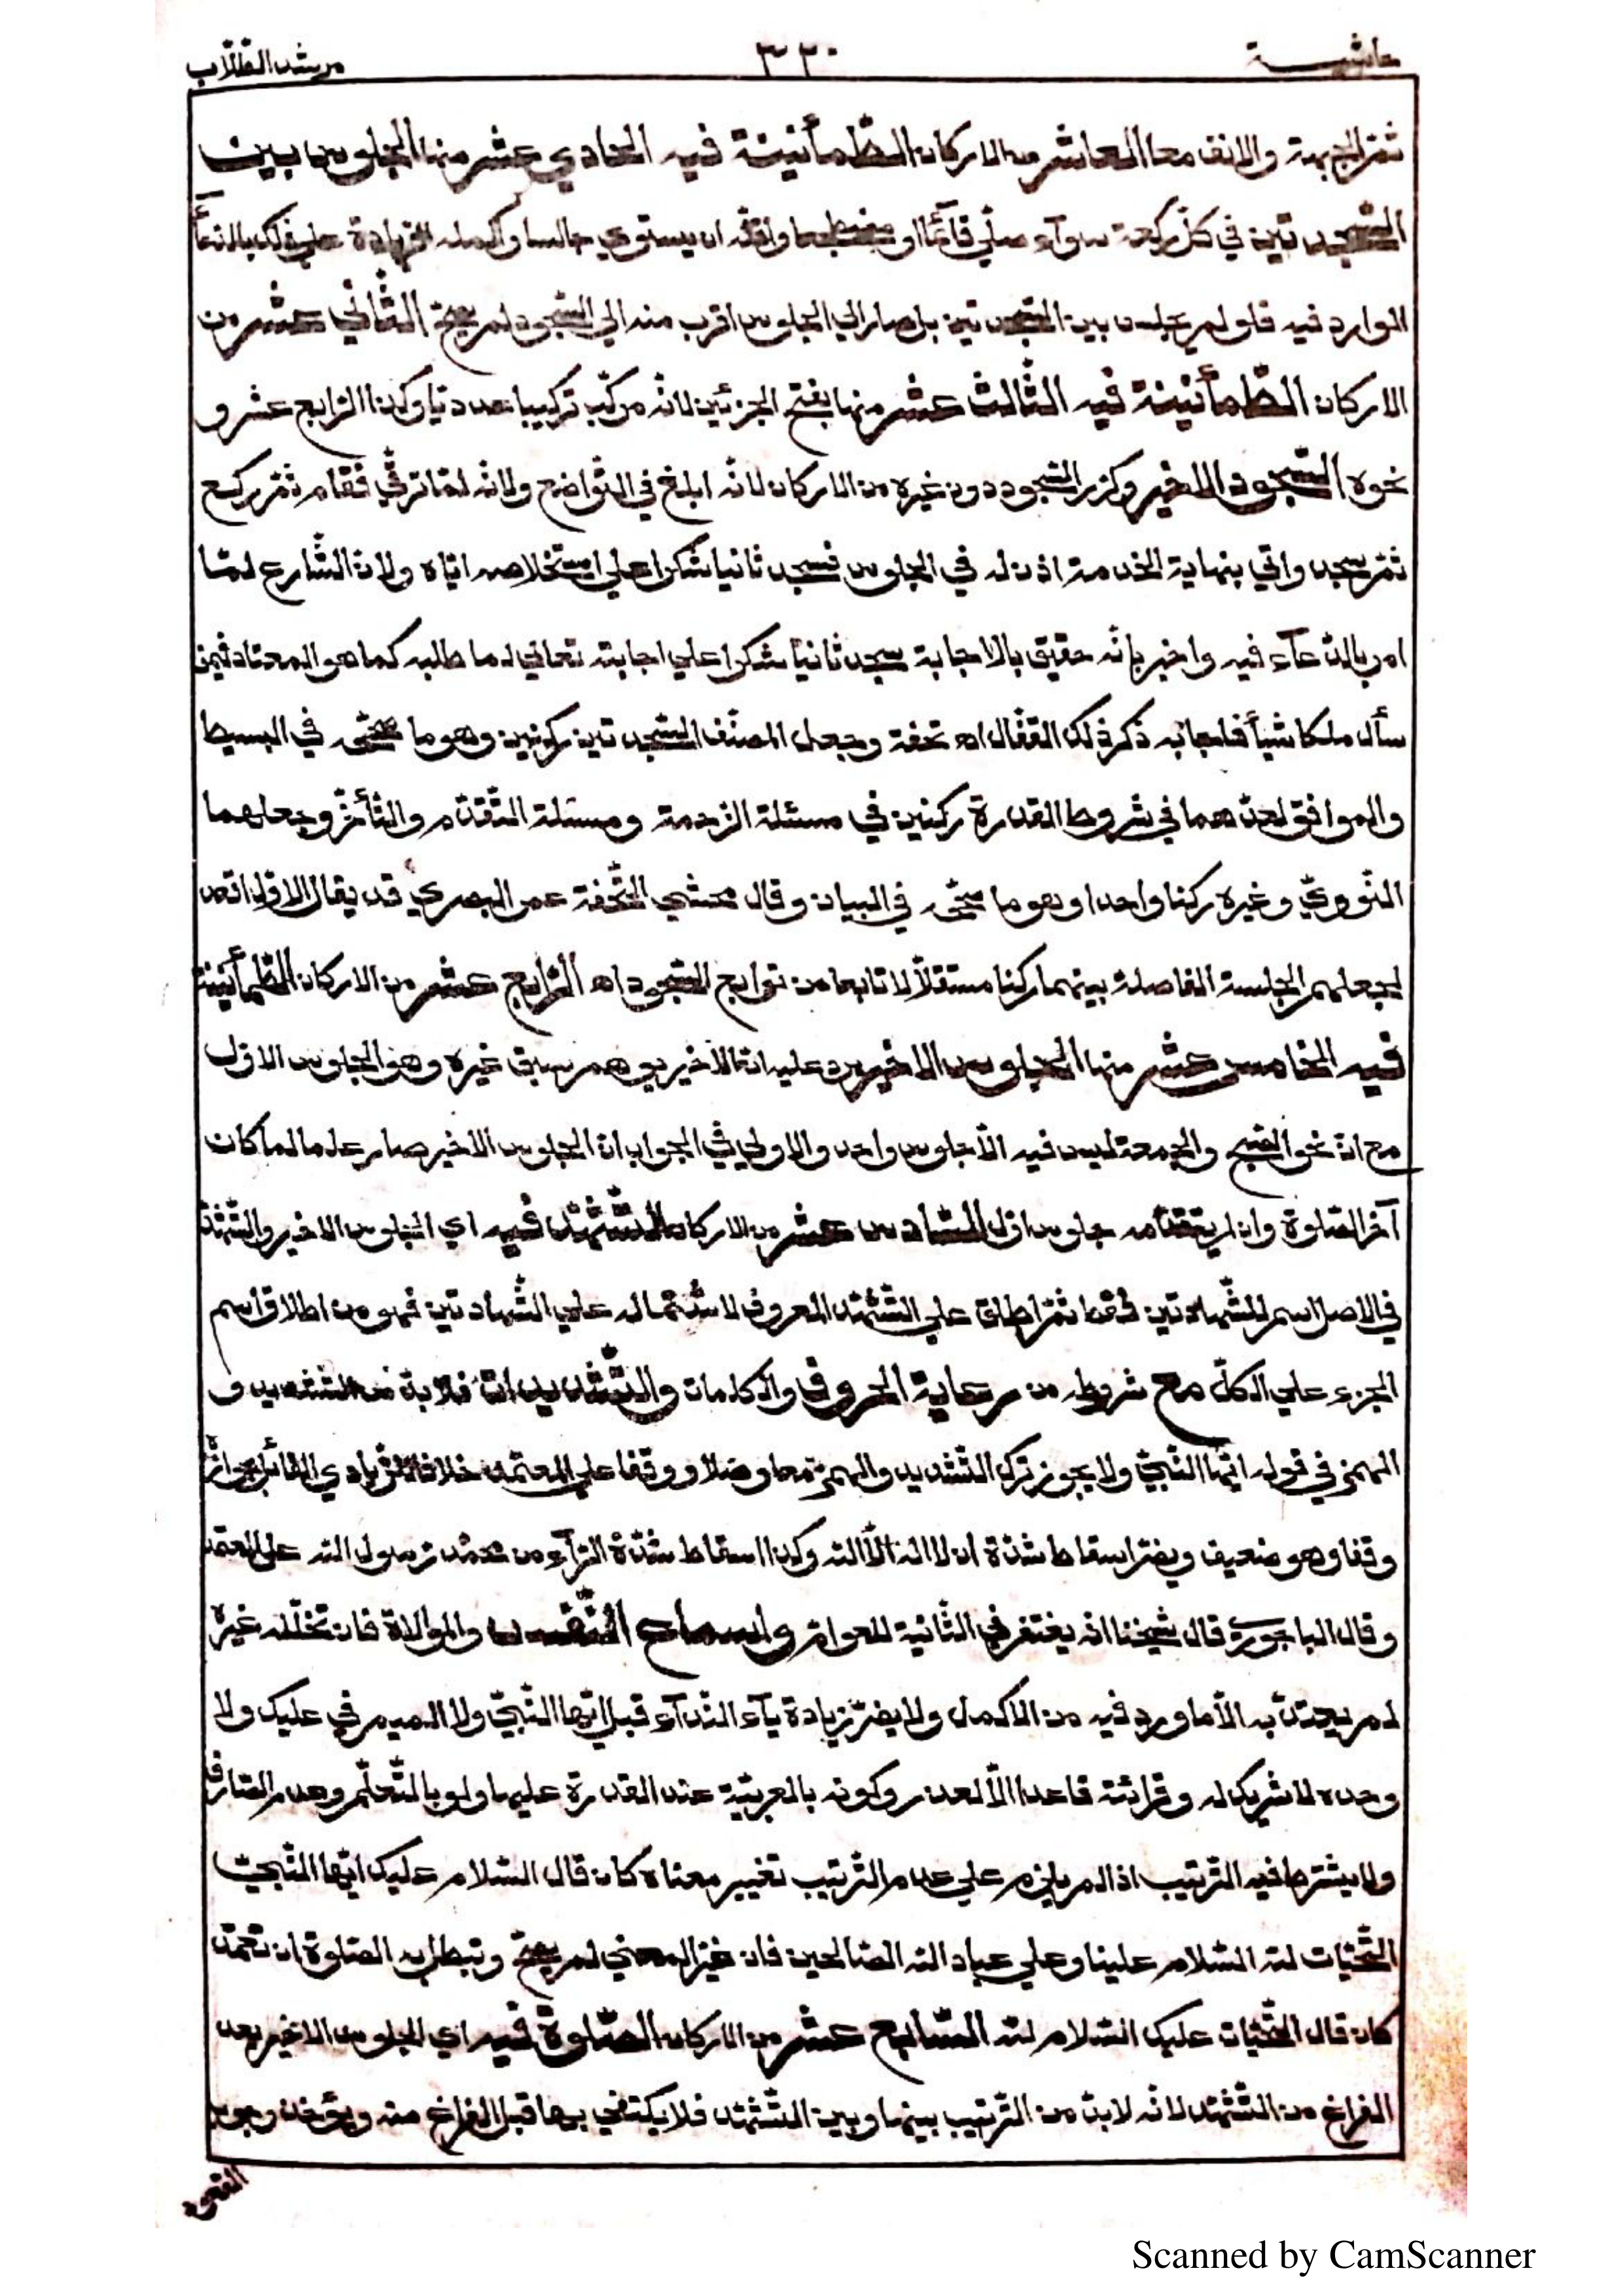 حاشية ٣٢٠ مرشد الطلاب
ثمّ الجبهة والانف معا العاشر من الاركان الطّمأنينة فيه الحادي عشر منها الجلوس بين
السّجدتين في كلّ ركعة سوآء صلّي قآئما او مضطجعا واقلّه ان يستوي جالسا واكمله الزيادة علي ذلك بالدّعآء
الوارد فيه فلو لم يجلس بين السّجدتين بل صار الي الجلوس اقرب منه الي السّجود لم يصحّ الثّاني عشر من
الاركان الطّمأنينة فيه الثّالث عشر منها بفتح الجزئين لانّه مركّب تركيبا عدديّا وكذا الرّابع عشر و
نحوه السّجود الاخير وكرّر السّجود دون غيره من الاركان لانّه ابلغ في التّواضع ولانّه لمّا ترقّي فقام ثمّ ركع
ثمّ سجد واتي بنهاية الخدمة اذن له في الجلوس فسجد ثانيا شكرا علي استخلاصه ايّاه ولان الشّارع لمّا
امر بالدّعآء فيه واخبر بانّه حقيق بالاجابة سجد ثانيا شكرا علي اجابته تعالي لما طلبه كما هو المعتاد فيمن
سأل ملكا شيأ فاجابه ذكر ذلك القفّال اه تحفة وجعل المصنّف السّجدتين ركنين وهو ما صحّحه في البسيط
والموافق لعدّهما في شروط القدرة ركنين في مسئلة الزحمة ومسئلة التّقدّم والتّأخّر وجعلهما
النّوويّ وغيره ركنا واحدا وهو ما صحّحه في البيان وقال محشي التّحفة عمر البصري قد يقال الاوّل اقعد
لجعلهم الجلسة الفاصلة بينهما ركنا مستقلّا لا تابعا من توابع السّجود اه الرّابع عشر من الاركان الطّمأنينة
فيه الخامس عشر منها الجلوس الاخير يرد عليه انّ الاخير يوهم سبق غيره وهو الجلوس الاوّل
مع انّ نحو الصّبح والجمعة ليس فيه الّا جلوس واحد والاولي في الجواب انّ الجلوس الاخير صار علما لما كان
آخر الصّلوة وان لم يتقدّمه جلوس اوّل السّادس عشر من الاركان التّشهّد فيه اي الجلوس الاخير والتّشهّد
في الاصل اسم للشّهادتين فقط ثمّ اطلق علي التّشهّد المعروف لاشتماله علي الشّهادتين فهو من اطلاق اسم
الجزء علي الكلّ مع شروطه من رعاية الحروف والكلمات والتّشديدات فلا بدّ من التّشديد و
الهمز في قوله ايّها النّبيّ ولا يجوز ترك التّشديد والهمز معا وصلا ووقفا علي المعتمد خلافا للزّيادي القائل بجوازه
وقفا وهو ضعيف ويضرّ اسقاط شدّة ان لا اله الّا الله وكذا اسقاط شدّة الرّآء من محمّد رسول الله علي المعتمد
وقال الباجوري قال شيخنا انّه يغتفر في الثّانية للعوامّ واسماع النّفس والموالاة فان تخلّله غيره
لم يعتدّ به الّا ما ورد فيه من الاكمل ولا يضرّ زيادة يآء النّدآء قبل ايّها النّبيّ ولا الميم في عليك ولا
وحده لا شريك له وقرائته قاعدا الّا لعذر وكونه بالعربيّة عند القدرة عليها ولو بالتّعلّم وعدم الصّارف
ولا يشترط فيه التّرتيب اذا لم يلزم علي عدم التّرتيب تغيير معناه كان قال السّلام عليك ايّها النّبيّ
التّحيّات لله السّلام علينا وعلي عباد الله الصّالحين فان غيّر المعني لم يصحّ وتبطل به الصّلوة ان تعمّد
كان قال التّحيّات عليك السّلام لله السّابع عشر من الاركان الصّلوة فيه اي الجلوس الاخير بعد
الفراغ من التّشهّد لانّه لا بدّ من التّرتيب بينها وبين التّشهّد فلا يكتفي بها قبل الفراغ منه ويؤخذ وجوب
القعود
Scanned by CamScanner